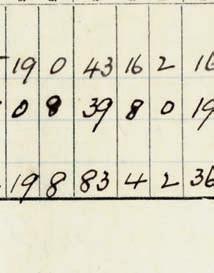 19 0 43 16 2 16
0 8 39 8 0 19
19 8 83 4 2 36